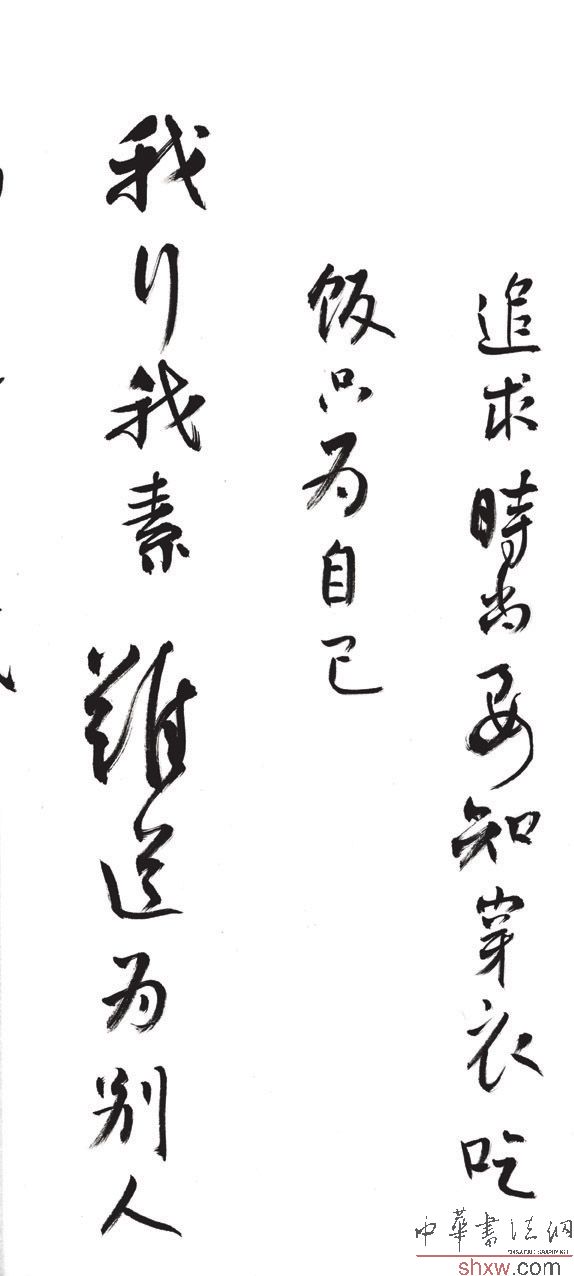 追求時尚要知穿衣吃
饭只为自己
我行我素難道为别人
中華書法網
shxw.com